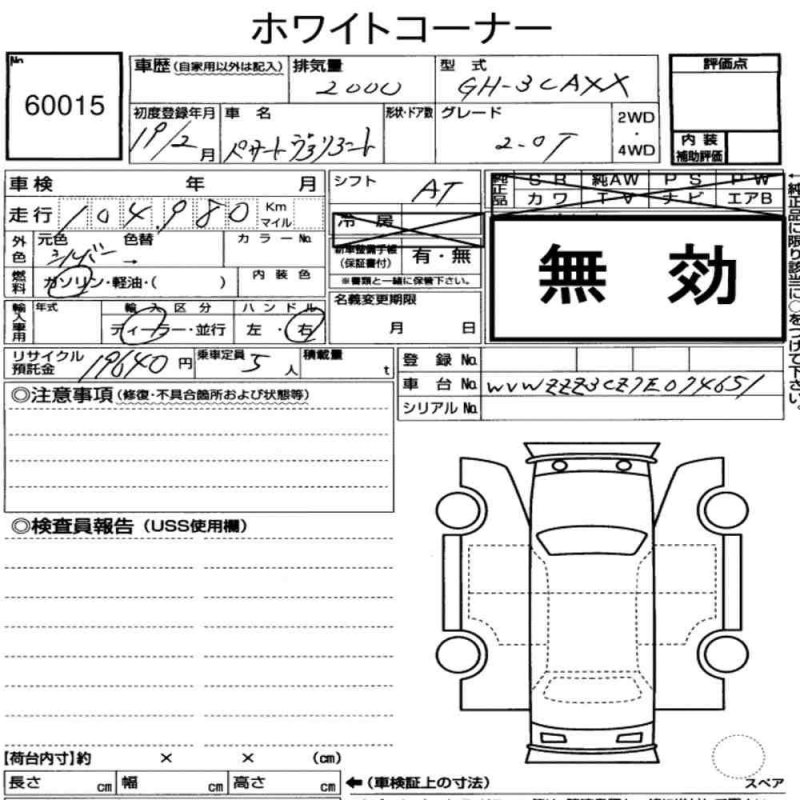 ホワイトコーナー
No 60015
車歴(自家用以外は記入) 排気量 2000 型式 GH-3CAXX 評価点
初度登録年月 19/2月 車名 パサートヴァリアント 形状・ドア数 グレード 2.0T 2WD・4WD
内装補助評価
車検 年 月 シフト AT 純正品 SR 純AW PS PW
カワ TV ナビ エアB
走行 104,980 Km マイル 冷房
外色 元色 シルバー 色替 → カラーNo. 新車整備手帳(保証書付) 有・無 無効
燃料 ガソリン・軽油・( ) 内装色 ※書類と一緒に保管下さい。
輸入車用 年式 輸入区分 ハンドル 名義変更期限
ディーラー・並行 左・右 月 日
リサイクル預託金 19640円 乗車定員 5人 積載量 t 登録No.
車台No. WVWZZZ3CZ7E074651
シリアルNo.
←純正品に限り該当に○をつけて下さい。
◎注意事項(修復・不具合箇所および状態等)
◎検査員報告(USS使用欄)
【荷台内寸】約 × × (cm)
長さ cm 幅 cm 高さ cm ←(車検証上の寸法) スペア